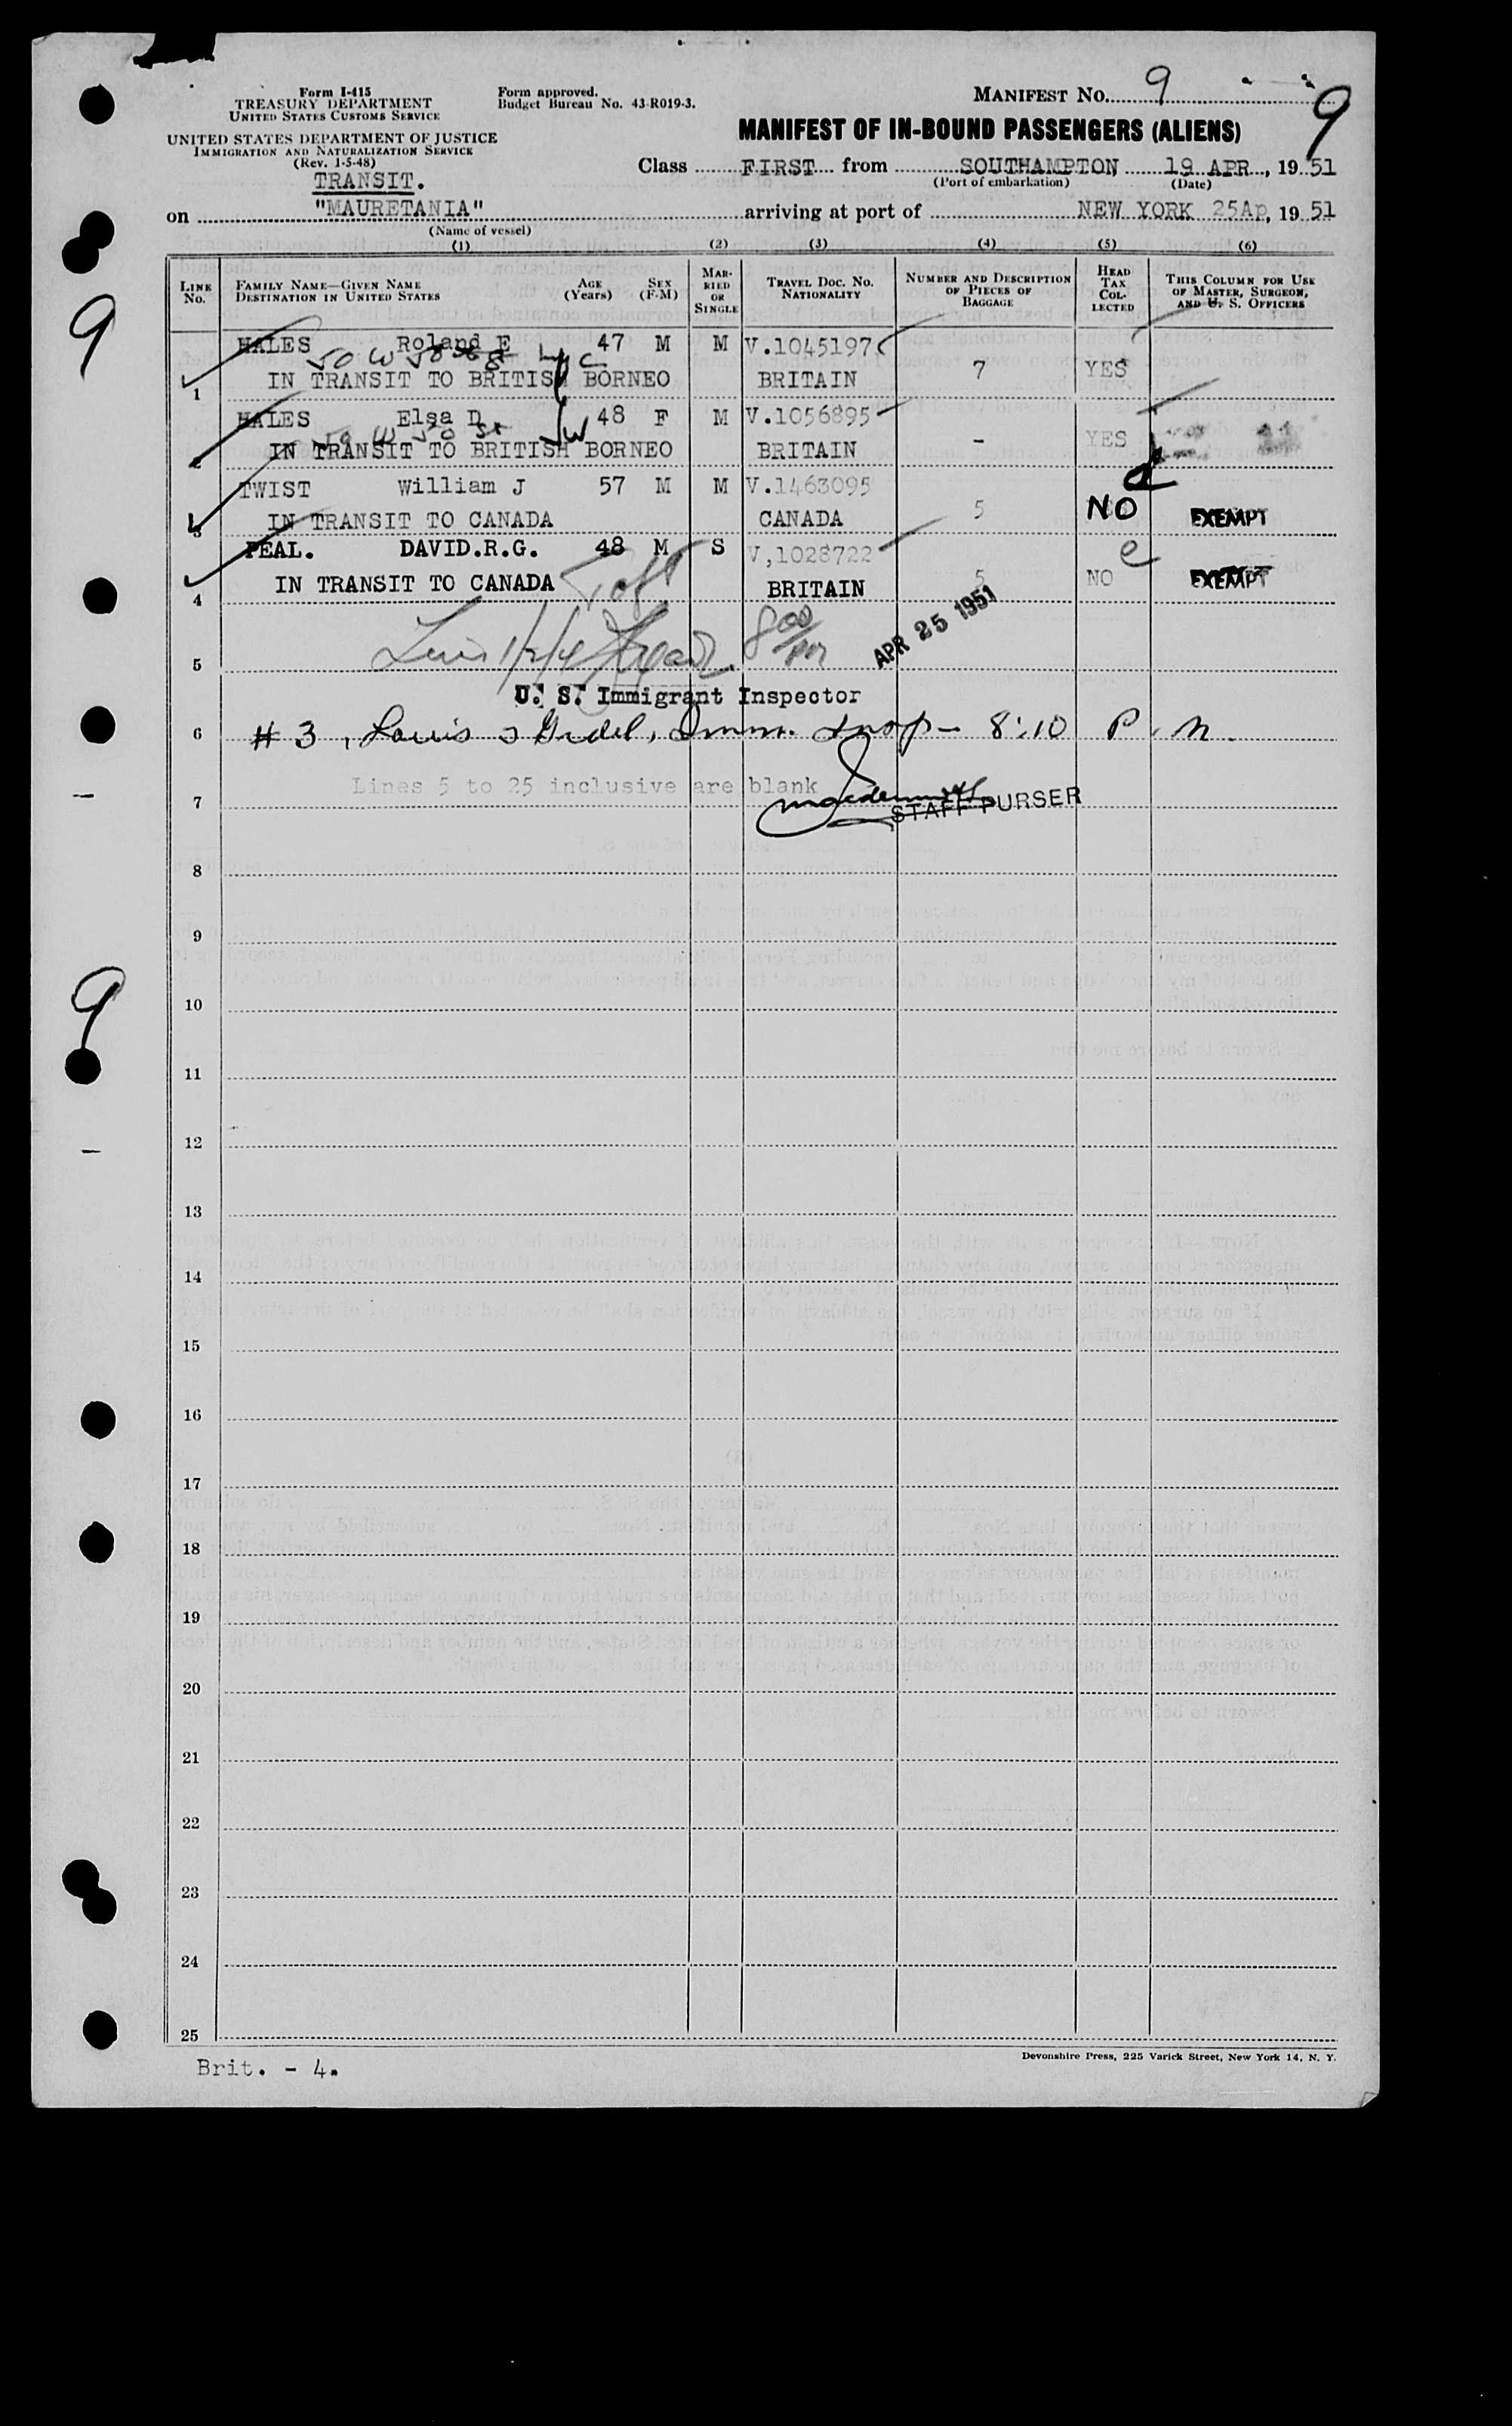 Form I-415
TREASURY DEPARTMENT
UNITED STATES CUSTOMS SERVICE
UNITED STATES DEPARTMENT OF JUSTICE
IMMIGRATION AND NATURALIZATION SERVICE
(Rev. 1-5-48)
TRANSIT.
Form approved.
Budget Bureau No. 43-R019-3.
MANIFEST No. 9
9
MANIFEST OF IN-BOUND PASSENGERS (ALIENS)
Class FIRST from SOUTHAMPTON 19 APR, 19 51
(Port of embarkation) (Date)
on "MAURETANIA" arriving at port of NEW YORK 25Ap, 19 51
(Name of vessel)
(1) (2) (3) (4) (5) (6)
LINE No.
FAMILY NAME—GIVEN NAME
DESTINATION IN UNITED STATES
AGE (Years)
SEX (F-M)
MARRIED OR SINGLE
TRAVEL DOC. NO. NATIONALITY
NUMBER AND DESCRIPTION OF PIECES OF BAGGAGE
HEAD TAX COLLECTED
THIS COLUMN FOR USE OF MASTER, SURGEON, AND U. S. OFFICERS
9
HALES Roland E 47 M M V.1045197
50 W 58
1 IN TRANSIT TO BRITISH BORNEO BRITAIN 7 YES
HALES Elsa D. 48 F M V.1056895
50 W 50 St
2 IN TRANSIT TO BRITISH BORNEO BRITAIN - YES
TWIST William J 57 M M V.1463095
3 IN TRANSIT TO CANADA CANADA 5 NO EXEMPT
PEAL. DAVID.R.G. 48 M S V,1028722
4 IN TRANSIT TO CANADA BRITAIN 5 NO EXEMPT
8 00 PM
APR 25 1951
5
U. S. Immigrant Inspector
6 # 3, Louis Imm. Insp - 8:10 P.M.
Lines 5 to 25 inclusive are blank
7
STAFF PURSER
8
9
9
10
11
12
13
14
15
16
17
18
19
20
21
22
23
24
25
Devonshire Press, 225 Varick Street, New York 14, N. Y.
Brit. - 4.